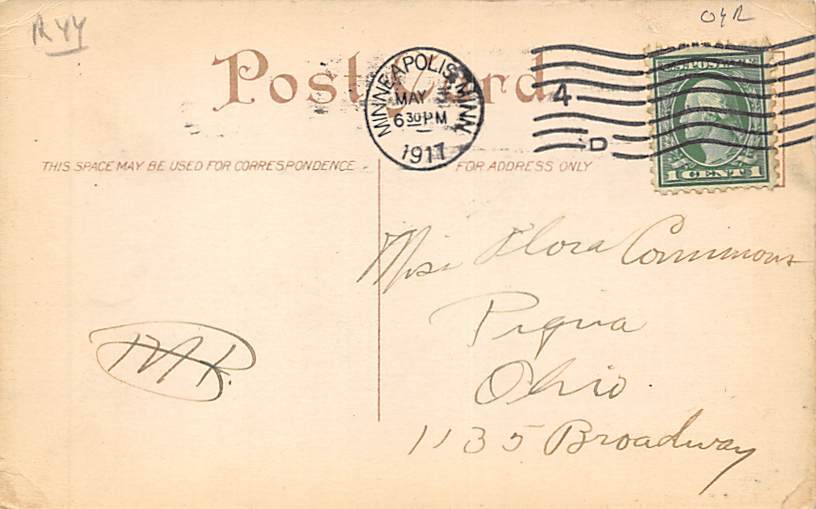 Post Card
MINNEAPOLIS, MINN
MAY 3
6 30 PM
1917
4
D
U.S. POSTAGE
1 CENTS 1
THIS SPACE MAY BE USED FOR CORRESPONDENCE
FOR ADDRESS ONLY
Miss Flora Commons
Piqua
Ohio.
1135 Broadway